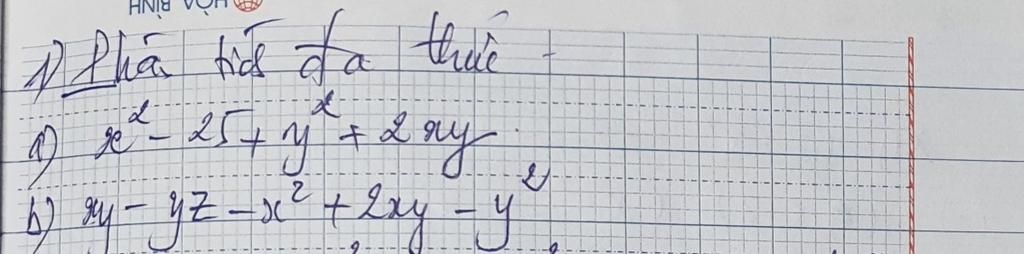 HÒA BÌNH
1) Phân tích đa thức
a) x² - 25 + y² + 2xy
b) xy - yz - x² + 2xy - y²